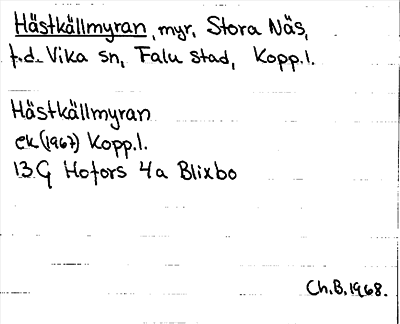 Hästkällmyran, myr, Stora Näs,
f.d. Vika sn, Falu stad, Kopp.l.
Hästkällmyran
ek (1967) Kopp.l.
13 G Hofors 4a Blixbo
Ch.B. 1968.